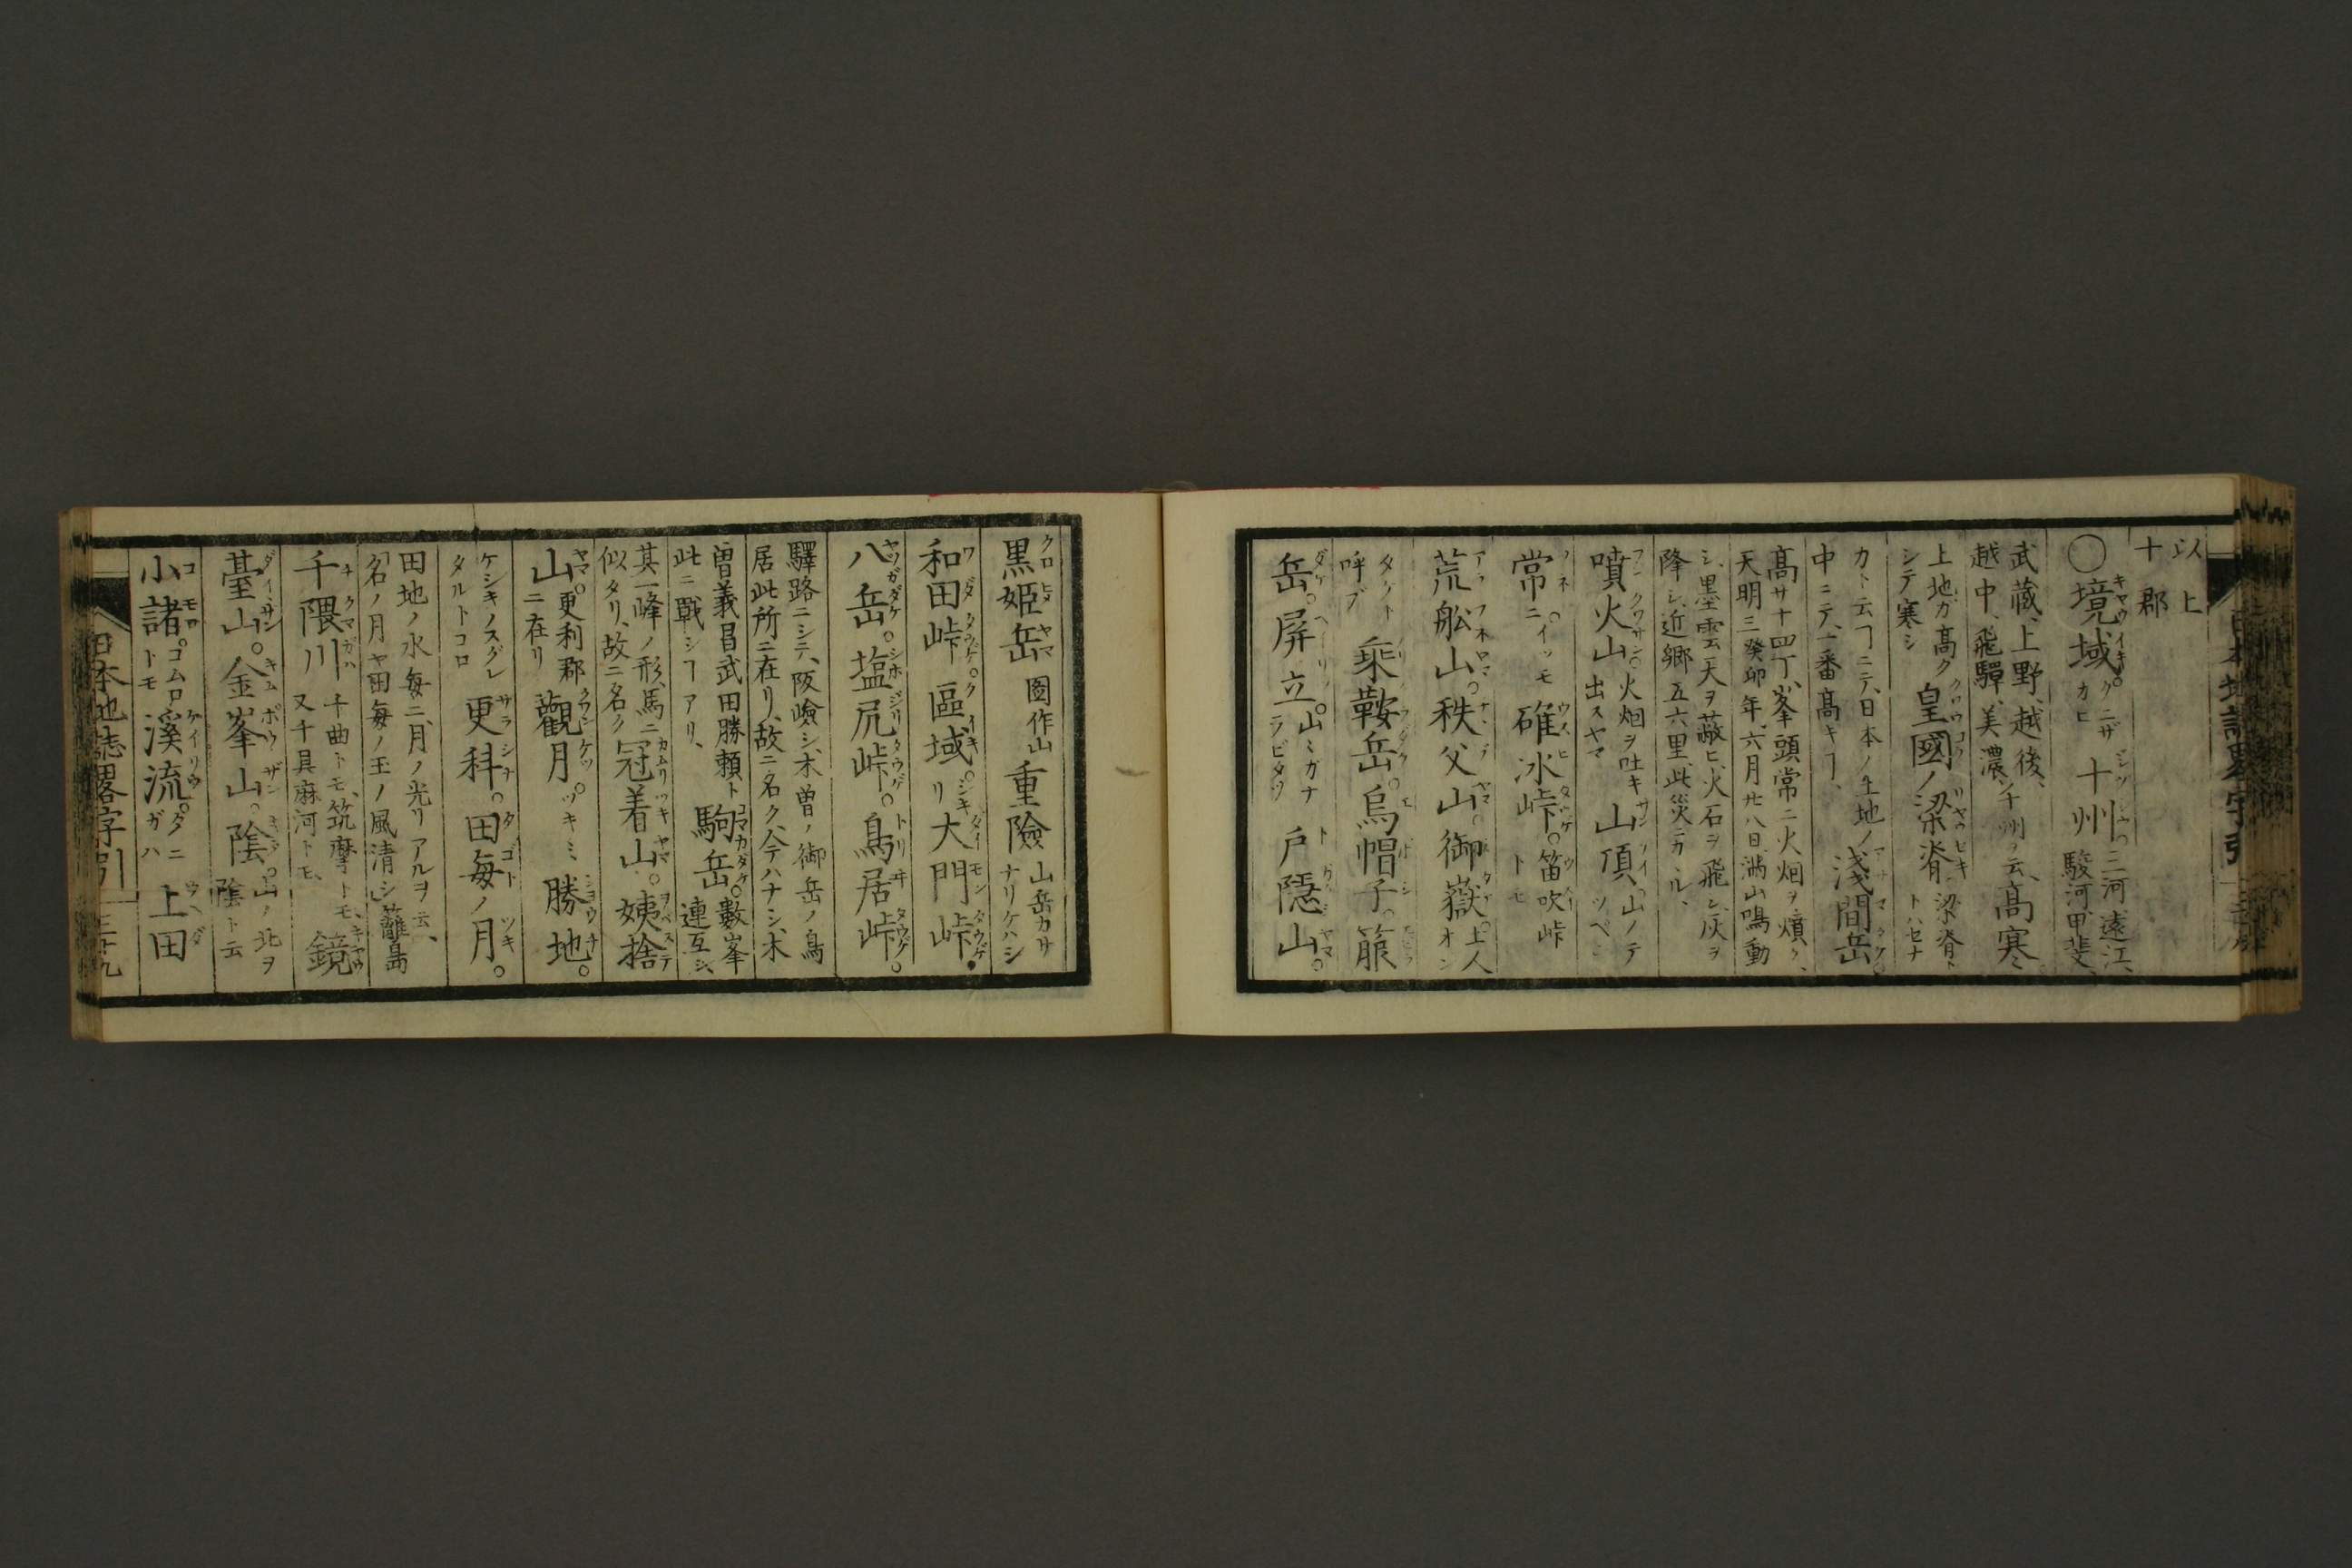 以上
十郡
〇境域。クニザカヒ 十州。三河、遠江、駿河、甲斐、
武蔵、上野、越後、
越中、飛驒、美濃ヲ十州ト云、高寒
上地ガ高クシテ寒シ 皇國ノ梁脊 梁脊トハセナ
カト云ヿニテ、日本ノ土地ノ
中ニテ、一番髙キヿ、 淺間岳
髙サ十四丁、峯頭常ニ火烟ヲ熕ク、
天明三癸卯年、六月廿八日、満山鳴動
シ、墨雲天ヲ蔽ヒ、火石ヲ飛シ、灰ヲ
降シ、近郷五六里、此災ニカヽル、
噴火山。火烟ヲ吐キ出スヤマ 山頂 山ノテツペン
常ニ。イツモ 碓氷峠。笛吹峠トモ
荒舩山。秩父山。御嶽。土人オン
タケト呼ブ 乘鞍岳。烏帽子。籠
岳。屏立。山々ガナラビタツ 戸隱山。
黒姫岳 圖作山 重險 山岳カサナリケハシ
和田峠 區域。シキリ 大門峠。
八岳。塩尻峠。鳥居峠。
驛路ニシテ、阪嶮シ、木曽ノ御岳ノ鳥
居此所ニ在リ、故ニ名ク、今ハナシ、木
曽義昌武田勝頼ト
此ニ戰シヿアリ、 駒岳。數峯連亙シ、
其一峰ノ形、馬ニ
似タリ、故ニ名ク 冠着山。姨捨
山。更利郡ニ在リ 觀月。ツキミ 勝地。
ケシキノスグレタルトコロ 更科。田毎ノ月。
田地ノ水毎ニ、月ノ光リアルヲ云、
名ノ月ヤ田毎ノ王ノ風清シ 蘿島
千隈川 千曲トモ、筑摩トモ、又千具麻河トモ、 鏡
臺山。金峯山。陰。山ノ北ヲ陰ト云
小諸。コムロトモ 溪流。タニガハ 上田
日本地誌畧字引 三十九